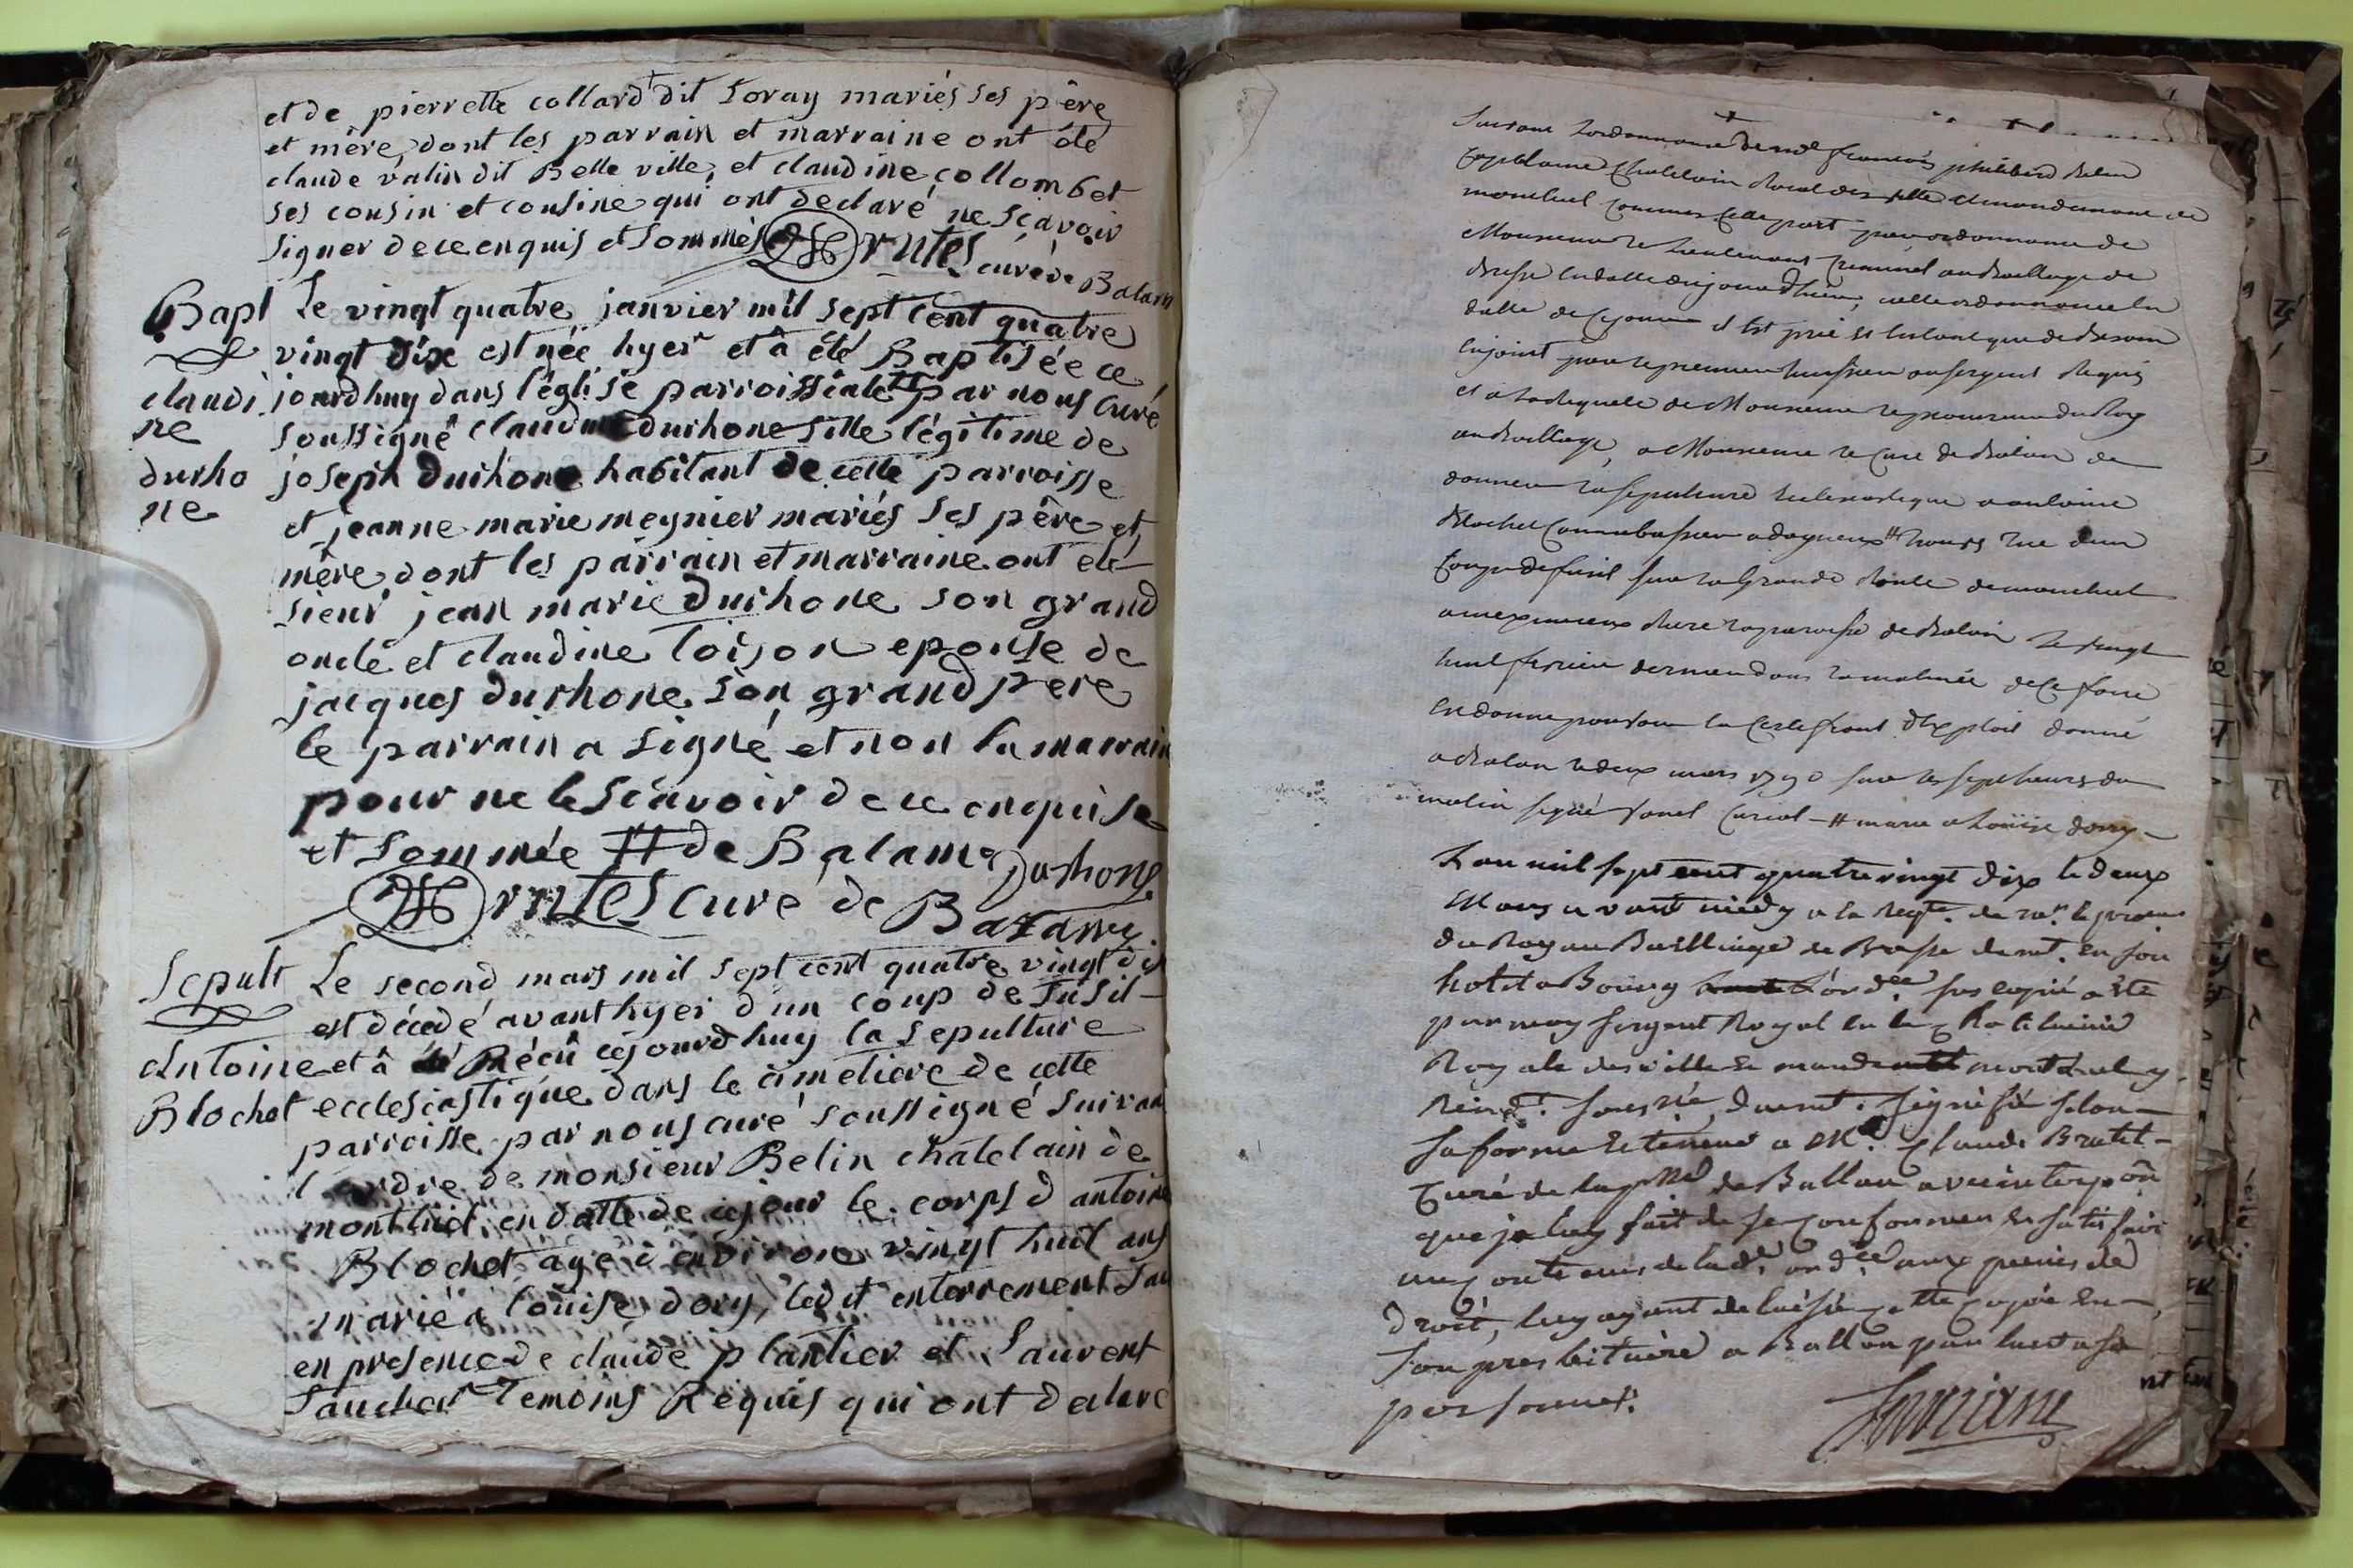 et de pierrette collard dit Loray mariés ses père
et mère, dont les parrain et marraine ont été
claude valin dit Belle ville, et claudine collombet
ses cousin et cousine qui ont declaré ne sçavoir
signer de ce enquis et sommés curé de Balan
Bapt
claudi
ne
durho
ne
Le vingt quatre janvier mil sept cent quatre
vingt dix est née hyer et â été Baptisée ce
jourdhuy dans l'église parroissiale # par nous curé
soussigné claudine durhone fille légitime de
joseph durhone habitant de cette parroisse
et jeanne marie meynier mariés ses père et
mère dont les parrain et marraine ont été
sieur jean marie durhone son grand
oncle et claudine loison epouse de
jacques durhone son grand pere
le parrain a signé et non la marrain
pour ne le sçavoir de ce enquise
et sommée # de Balam Durhone
curé de Balam
Sepult
Antoine
Blochet
Le second mars mil sept cent quatre vingt dix
est décédé avant hyer d'un coup de fusil
et â Réçû cejourdhuy la sepulture
ecclesiastique dans le cimetiere de cette
parroisse par nous curé soussigné suivan
l'ordre de monsieur Belin châtelain de
montluel en datte de cejour le corps d'antoine
Blochet agé d'environ vingt huit ans
marié a loüise dory, ledit enterrement
en presence de claude plantier et Laurent
Temoins Requis qui ont declaré
Suivant Lordonnance de philibert Belin
capitaine Chatelain Royal des ville et mandement de
montluel commis cette part par ordonnance de
Monsieur le Lieutenant Criminel au Bailliage de
Bresse en datte du jour d'hier, icelle ordonnance en
datte de ce jour il est
enjoint par le premier huissier ou sergent Requis
et a la Requete de Monsieur le procureur du Roy
au Bailliage, a Monsieur le Curé de Balan de
donner la sepulture Eclesiastique a antoine
Blochet # tué d'un
Coup de fusil sur la Grande Route de montluel
a meximieux la paroisse de Balan le vingt
huit fevrier dernier dans la matinée
donné
a Balan le deux mars 1790 sur les sept heures du
matin signé # marié a Loüise dory
L'an mil sept cent quatre vingt dix le deux
Mars avant midy a la Reqte. de mr. le
du Roy au Bailliage de Bresse en son
hotel a Bourg copié a été
par moy sergent Royal en la Chatelainie
Royale des ville et mandement montluel y
signifié selon
sa forme et teneur a Mr. Claude
Curé de de Ballan
que je luy fait de se conformer et satisfaire
aux contenus de lad. aux peines de
droit, luy ayant delaissé cette copie en
son presbitaire a Ballan parlant a sa
personne.